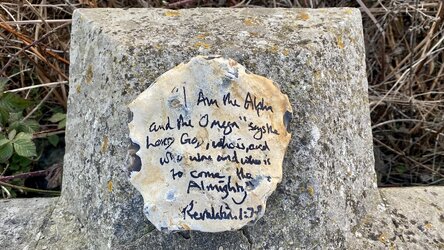 "I Am the Alpha
and the Omega" says the
Lord God, who is, and
who was and who is
to come, the
Almighty"
Revelation. 1:7-8